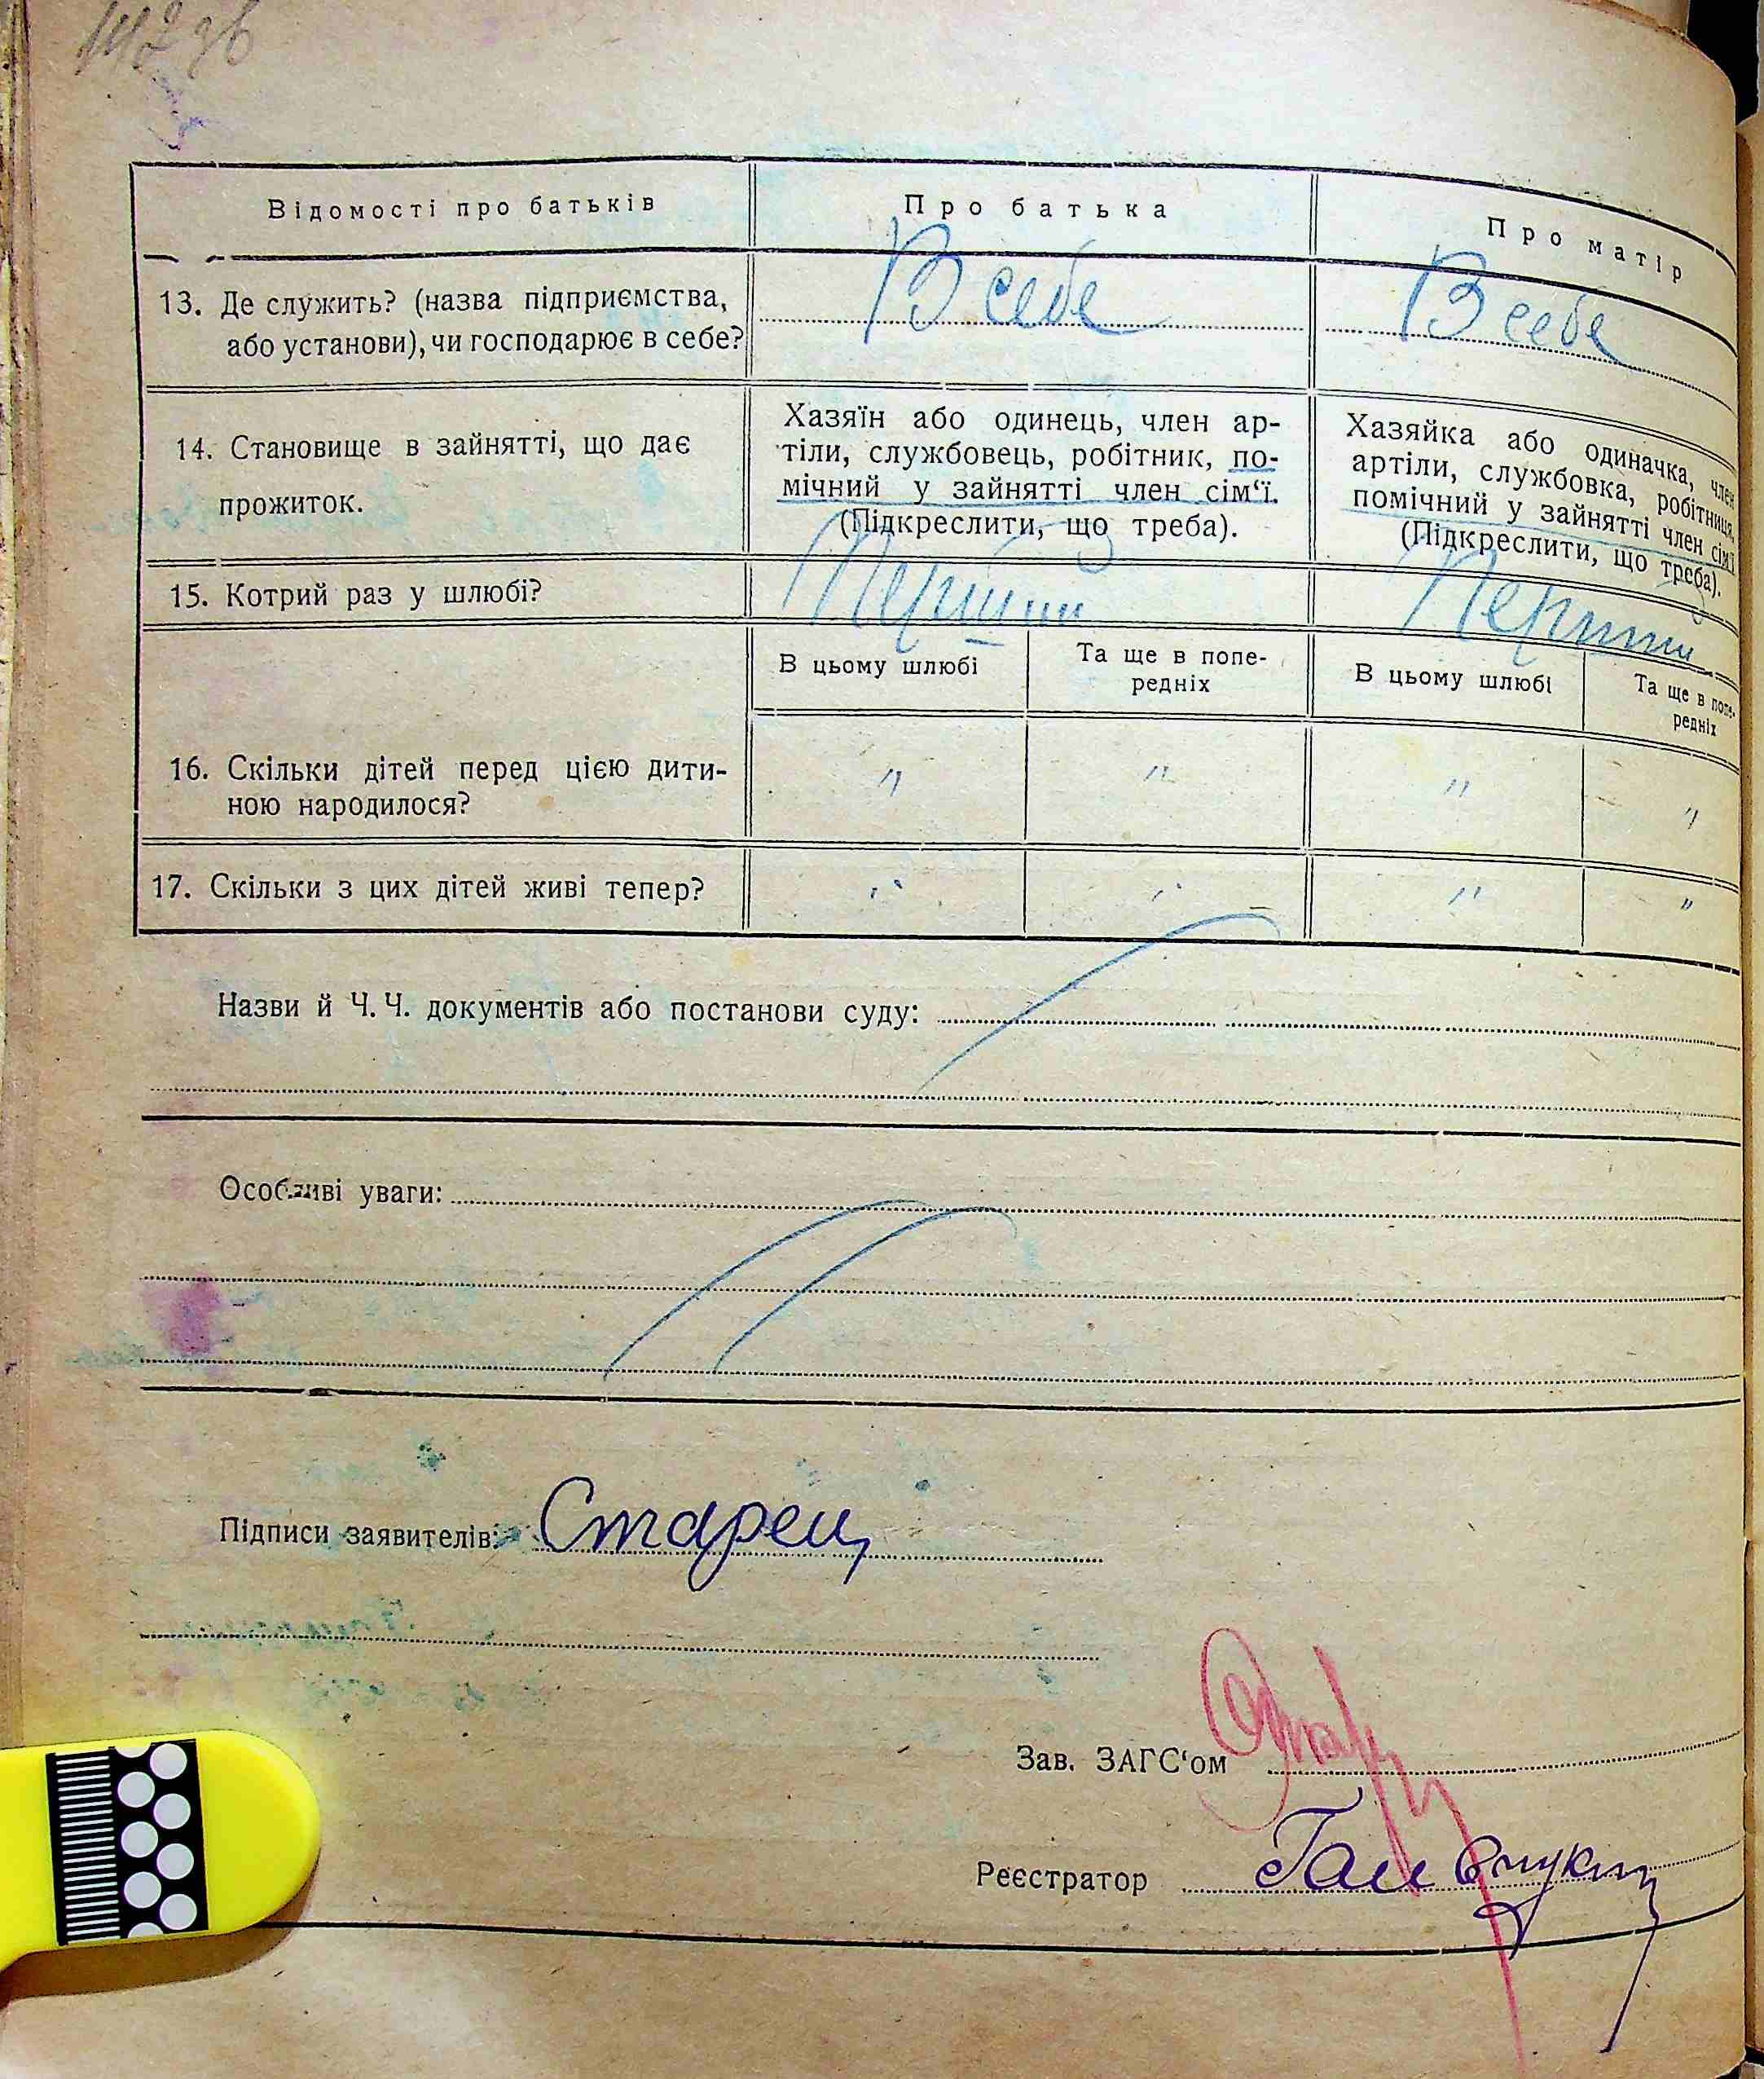 142 зв
Відомості про батьків
Про батька
Про матір
13. Де служить? (назва підприємства,
або установи), чи господарює в себе?
В себе
В себе
14. Становище в зайнятті, що дає
прожиток.
Хазяїн або одинець, член ар-
тіли, службовець, робітник, по-
мічний у зайнятті член сім‘ї.
(Підкреслити, що треба).
Хазяйка або одиначка, член
артіли, службовка, робітниця,
помічний у зайнятті член сім‘ї
(Підкреслити, що треба).
15. Котрий раз у шлюбі?
Перший
Перший
В цьому шлюбі
Та ще в попе-
редніх
В цьому шлюбі
Та ще в попе-
редніх
16. Скільки дітей перед цією дити-
ною народилося?
"
"
"
"
17. Скільки з цих дітей живі тепер?
"
"
"
"
Назви й Ч. Ч. документів або постанови суду:
Особливі уваги:
Підписи заявителів: Старец
Зав. ЗАГС‘ом
Реєстратор